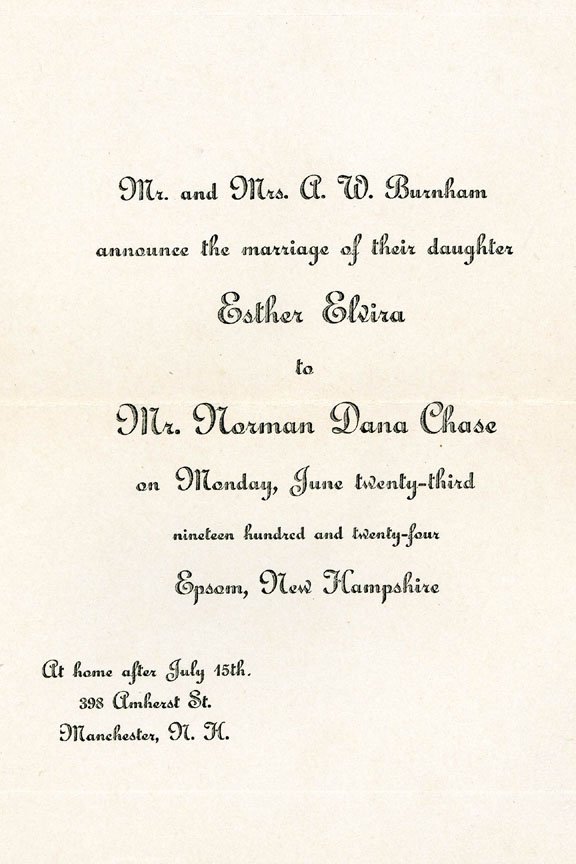 Mr. and Mrs. A. W. Burnham
announce the marriage of their daughter
Esther Elvira
to
Mr. Norman Dana Chase
on Monday, June twenty-third
nineteen hundred and twenty-four
Epsom, New Hampshire
At home after July 15th.
398 Amherst St.
Manchester, N. H.